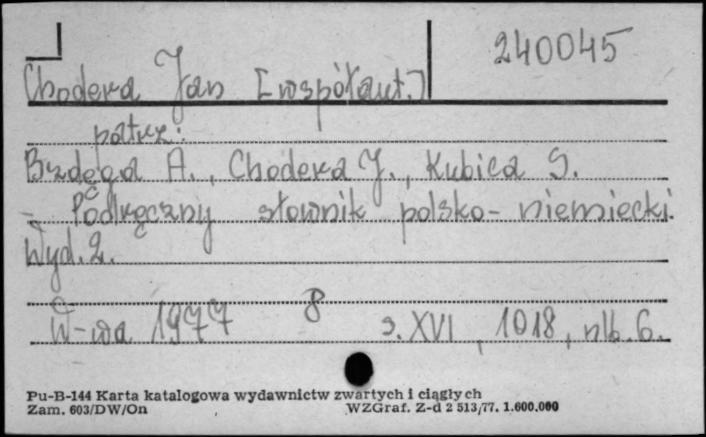 240045
Chodera Jan [współaut.]
patrz:
Bzdęga A., Chodera J., Kubica S.
- Podręczny słownik polsko-niemiecki.
Wyd. 2.
W-wa 1977 8 s. XVI, 1018, nlb. 6.
Pu-B-144 Karta katalogowa wydawnictw zwartych i ciągłych
Zam. 603/DW/On WZGraf. Z-d 2 513/77. 1.600.000